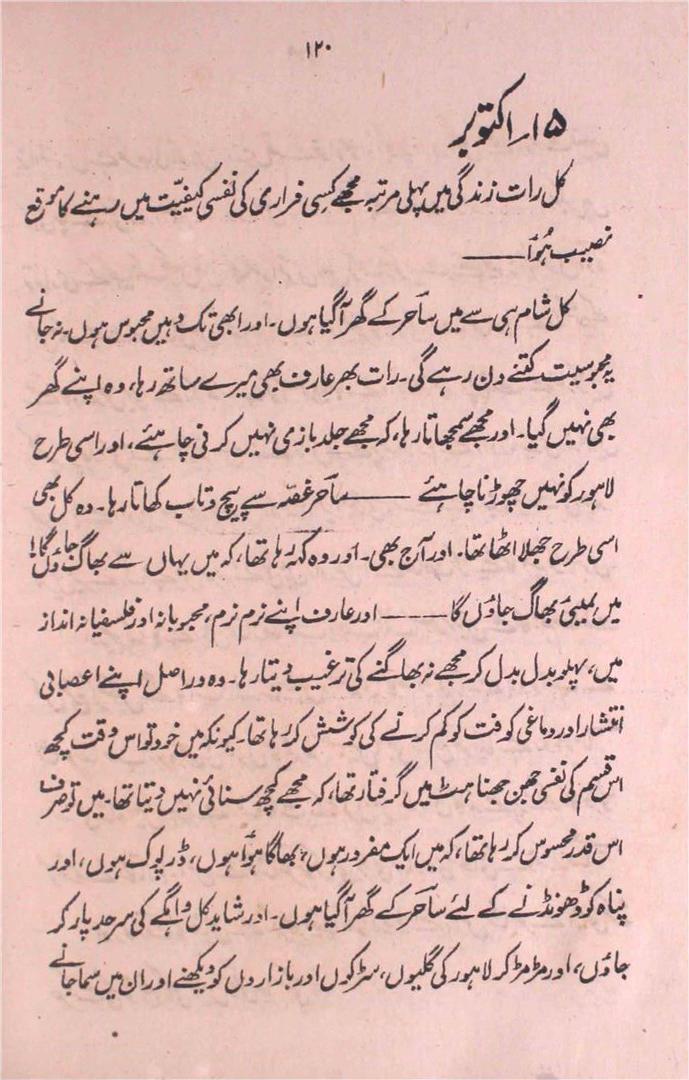 ۱۲۰
۱۵۔ اکتوبر
کل رات زندگی میں پہلی مرتبہ مجھے کسی فراری کی نفسی کیفیّت میں رہنے کا موقع
نصیب ہُوا ———
کل شام ہی سے میں ساحر کے گھر آ گیا ہوں۔ اور ابھی تک وہیں محبوس ہوں۔ نہ جانے
یہ محبوسیت کتنے دن رہے گی۔ رات بھر عارف بھی میرے ساتھ رہا، وہ اپنے گھر
بھی نہیں گیا۔ اور مجھے سمجھاتا رہا، کہ مجھے جلد بازی نہیں کرنی چاہئے، اور اسی طرح
لاہور کو نہیں چھوڑنا چاہئے ——— ساحر غصّہ سے پیچ و تاب کھاتا رہا۔ وہ کل بھی
اسی طرح جھلا اٹھا تھا۔ اور آج بھی۔ اور وہ کہہ رہا تھا، کہ میں یہاں سے بھاگ جاؤں گا!
میں بمبئی بھاگ جاؤں گا ——— اور عارف اپنے نرم نرم، محبوبانہ اور فلسفیانہ انداز
میں، پہلو بدل بدل کر مجھے نہ بھاگنے کی ترغیب دیتا رہا۔ وہ دراصل اپنے اعصابی
انتشار اور دماغی کوفت کو کم کرنے کی کوشش کر رہا تھا۔ کیونکہ میں خود تو اس وقت کچھ
اس قسم کی نفسی جھن جھناہٹ میں گرفتار تھا، کہ مجھے کچھ سنائی نہیں دیتا تھا۔ میں تو صرف
اس قدر محسوس کر رہا تھا، کہ میں ایک مفرور ہوں، بھاگا ہوا ہوں، ڈرپوک ہوں، اور
پناہ کو ڈھونڈنے کے لئے ساحر کے گھر آ گیا ہوں۔ اور شاید کل واہگے کی سرحد پار کر
جاؤں، اور مڑ مڑ کر لاہور کی گلیوں، سڑکوں اور بازاروں کو دیکھنے اور ان میں سما جانے